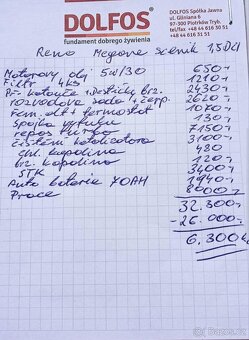 DOLFOS
fundament dobrego żywienia
DOLFOS Spółka Jawna
ul. Gliniana 6
97-300 Piotrków Tryb.
+48 44 616 30 51
+48 44 616 31 51
Reno Megane Scenik 1,5DCI
Motorový olej 5W/30 650,-
Filtr 4ks 1210,-
Př. kotouče + Destičky brz. 2430,-
rozvodová sada + čerp. 2620,-
Řem. alt + termostat 1070,-
Spojka výfuku 130,-
repas turbo 7150,-
čistění katalizátoru 3100,-
chl. kapalina 480,-
brz. kapalina 120,-
STK 3400,-
Auto baterie 70AH 1940,-
Práce 8000,-
32.300,-
-26.000,-
6.300kč